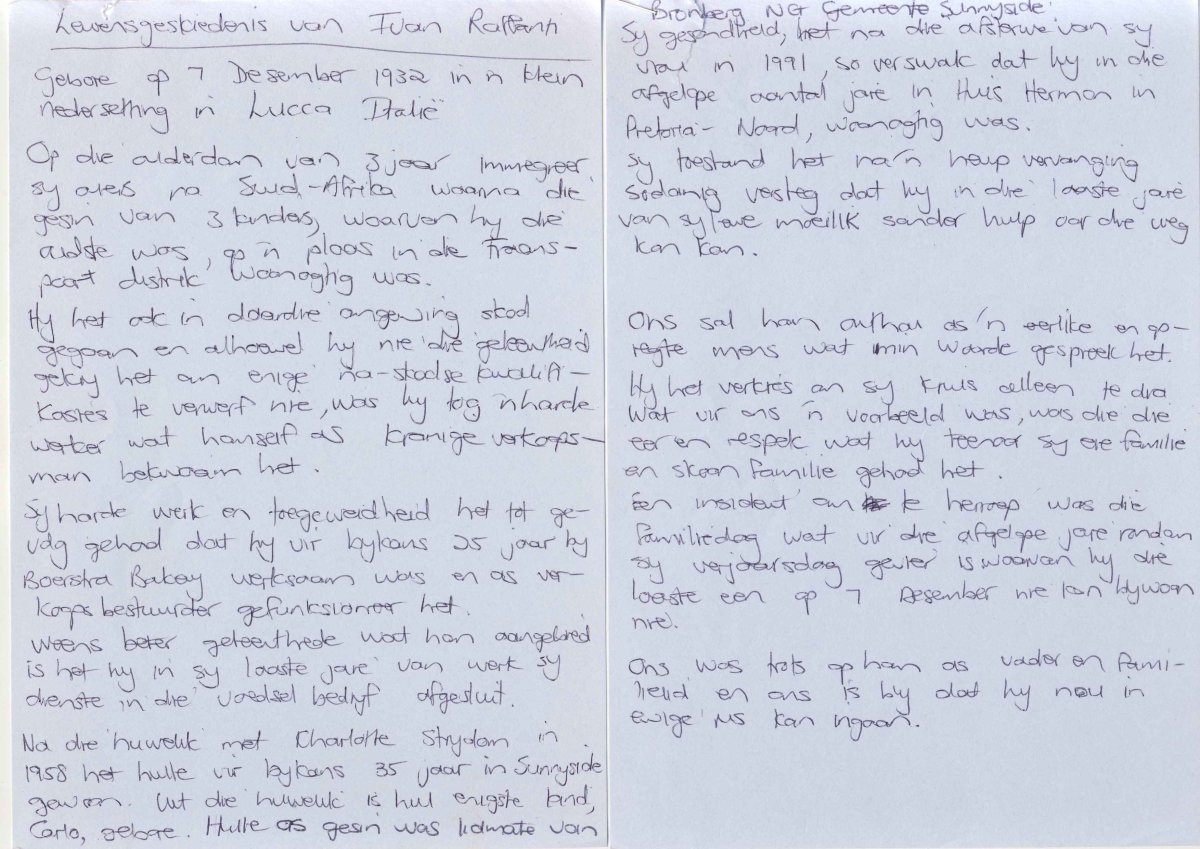 Lewensgeskiedenis van Ivan Raffanti
Gebore op 7 Desember 1932 in 'n klein
nedersetting in Lucca Italië
Op die ouderdom van 3 jaar immegreer
sy ouers na Suid-Afrika waarna die
gesin van 3 kinders, waarvan hy die
oudste was, op 'n plaas in die Frans-
poort distrik woonagtig was.
Hy het ook in daardie omgewing skool
gegaan en alhoewel hy nie die geleentheid
gekry het om enige na-skoolse kwalifi-
kasies te verwerf nie, was hy tog 'n harde
werker wat homself as kranige verkoops-
man bekwaam het.
Sy harde werk en toegeweidheid het tot ge-
volg gehad dat hy vir bykans 25 jaar by
Boerstra Bakery werksaam was en as ver-
koopsbestuurder gefunksioneer het.
Weens beter geleenthede wat hom aangebied
is het hy in sy laaste jare van werk sy
dienste in die voedsel bedryf afgesluit.
Na die huwelik met Charlotte Strydom in
1958 het hulle vir bykans 35 jaar in Sunnyside
gewoon. Uit die huwelik is hul enigste kind,
Carlo, gebore. Hulle as gesin was lidmate van
Bronberg NG Gemeente Sunnyside.
Sy gesondheid, het na die afsterwe van sy
vrou in 1991, so verswak dat hy in die
afgelope aantal jare in Huis Hermon in
Pretoria-Noord, woonagtig was.
Sy toestand het na 'n heup vervanging
sodanig versleg dat hy in die laaste jare
van sy lewe moeilik sonder hulp oor die weg
kon kom.
Ons sal hom onthou as 'n eerlike en op-
regte mens wat min woorde gespreek het.
Hy het verkies om sy kruis alleen te dra
Wat vir ons 'n voorbeeld was, was die die
eer en respek wat hy teenoor sy eie familie
en skoon familie gehad het.
Een insident om te herroep was die
Familiedag wat vir die afgelope jare rondom
sy verjaarsdag gevier is waarvan hy die
laaste een op 7 Desember nie kon bywoon
nie.
Ons was trots op hom as vader en fami-
lielid en ons is bly dat hy nou in
ewige rus kan ingaan.